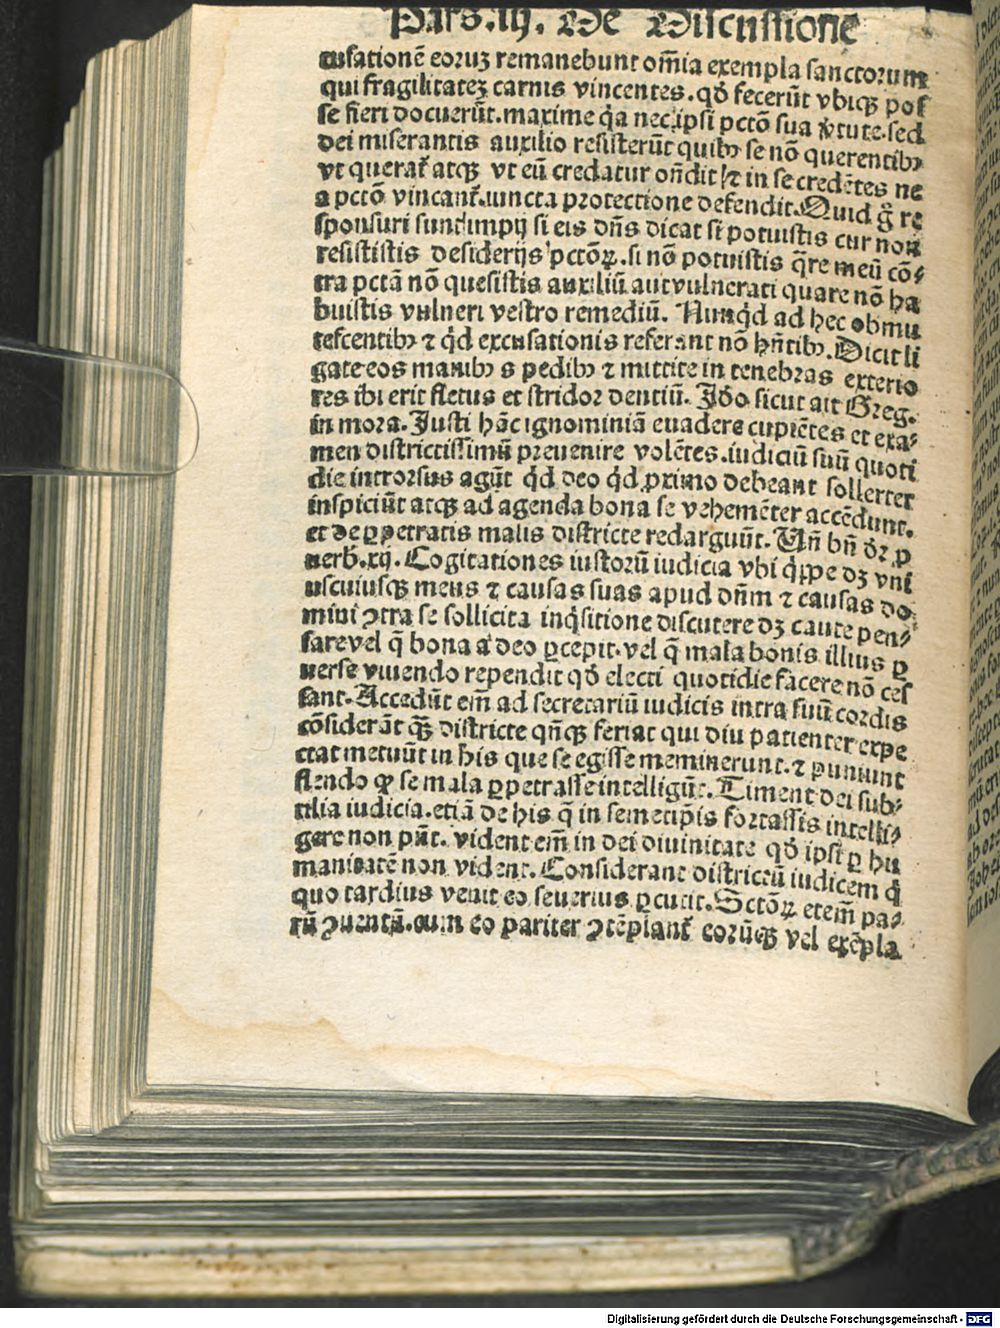 Pars.iij. De Discussione
cusationē eoruꝫ remanebunt om̄ia exempla sanctorum
qui fragilitateꝫ carnis vincentes.qđ fecerūt vbiqꝫ pos
se fieri docuerūt.maxime q̇a nec ipsi pctō sua v̇tute.sed
dei miserantis auxilio resisterūt quibꝰ se nō querentibꝰ
vt querat̄ atqꝫ vt eū credatur on̄dit ⁊ in se credētes ne
a pctō vincant̄.iuncta protectione defendit.Quid g̊ re
sponsuri sunt impij si eis dn̄s dicat si potuistis cur non
resististis desiderijs pctōꝝ.si nō potuistis q̄re meū cō⸗
tra pctā nō quesistis auxiliū aut vulnerati quare nō ha
buistis vulneri vestro remediū. Nunq̇d ad hec obmu
tescentibꝰ ⁊ q̇d excusationis referant nō hn̄tibꝰ.Dicit li
gate eos manibꝰ ⁊ pedibꝰ ⁊ mittite in tenebras exterio
res ibi erit fletus et stridor dentiū. Idō sicut ait Greg.
in mora.Iusti hāc ignominiā euadere cupiētes et exa⸗
men districtissimū preuenire volētes.iudiciū suū quoti
die introrsus agūt q̇d deo q̇d ꝓximo debeant sollerter
inspiciūt atqꝫ ad agenda bona se vehemēter accēdunt.
et de ꝑpetratis malis districte redarguūt. Vn̄ bn̄ dr̄ ꝓ
uerb.xij. Cogitationes iustorū iudicia vbi q̇ppe dꝫ vni
uscuiusqꝫ mens ⁊ causas suas apud dn̄m ⁊ causas do
mini ꝯtra se sollicita inq̇sitione discutere dꝫ caute pen⸗
sare vel q̄ bona a deo ꝑcepit.vel q̄ mala bonis illius ꝑ
uerse viuendo rependit qđ electi quotidie facere nō ces
sant.Accedūt em̄ ad secretariū iudicis intra suū cordis
cōsiderāt qꝫ districte qn̄qꝫ feriat qui diu patienter expe
ctat metuūt in his que se egisse meminerunt.⁊ puniunt
flendo qꝫ se mala ꝑpetrasse intelligūt.Timent dei sub⸗
tilia iudicia.etiā de his q̄ in semetip̄is fortassis intelli⸗
gere non pn̄t. vident em̄ in dei diuinitate qđ ipsi ꝑ hu
manitatē non vident.Considerant districtū iudicem q̇
quo tardius venit eo seuerius ꝑcutit.Sctōꝝ etem̄ pa⸗
trū ꝯuentū.cum eo pariter ꝯtēplant̄ eorūqꝫ vel exēpla
Digitalisierung gefördert durch die Deutsche Forschungsgemeinschaft - DFG